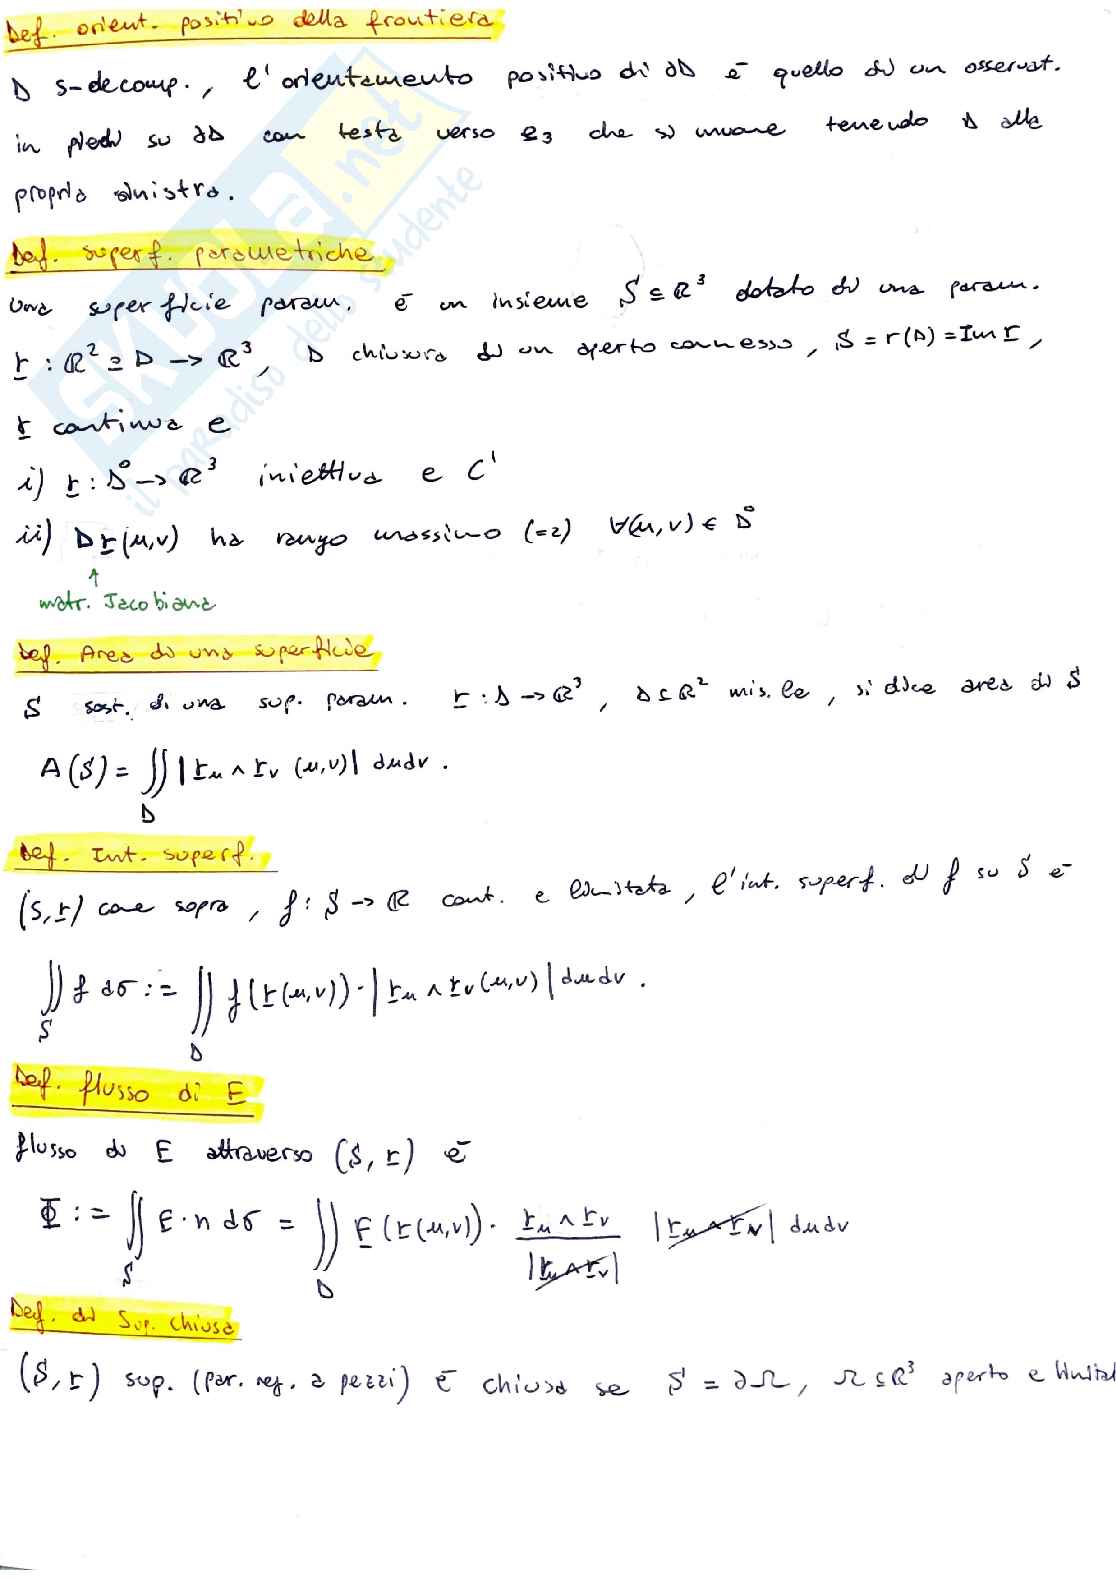 Def. orient. positivo della frontiera
D s-decomp., l'orientamento positivo di ∂D è quello di un osservat.
in piedi su ∂D con testa verso e3 che si muove tenendo D alla
propria sinistra.
Def. superf. parametriche
Una superficie param. è un insieme S ⊆ ℝ³ dotato di una param.
r : ℝ² ⊇ D → ℝ³, D chiusura di un aperto connesso, S = r(D) = Im r,
r continua e
i) r : D° → ℝ³ iniettiva e C¹
ii) Dr(u,v) ha rango massimo (=2) ∀(u,v) ∈ D°
↑
matr. Jacobiana
Def. Area di una superficie
S sost. di una sup. param. r : D → ℝ³, D ⊆ ℝ² mis.le, si dice area di S
A(S) = ∬_D |r_u ∧ r_v (u,v)| dudv.
Def. Int. superf.
(S,r) come sopra, f : S → ℝ cont. e limitata, l'int. superf. di f su S è
∬_S f dσ := ∬_D f(r(u,v)) · |r_u ∧ r_v (u,v)| dudv.
Def. flusso di F
flusso di F attraverso (S, r) è
Φ := ∬_S F · n dσ = ∬_D F(r(u,v)) · (r_u ∧ r_v)/|r_u ∧ r_v| |r_u ∧ r_v| dudv
Def. di Sup. chiusa
(S, r) sup. (par. reg. a pezzi) è chiusa se S = ∂Ω, Ω ⊆ ℝ³ aperto e limitat
SKUOLA.net
il paradiso dello studente